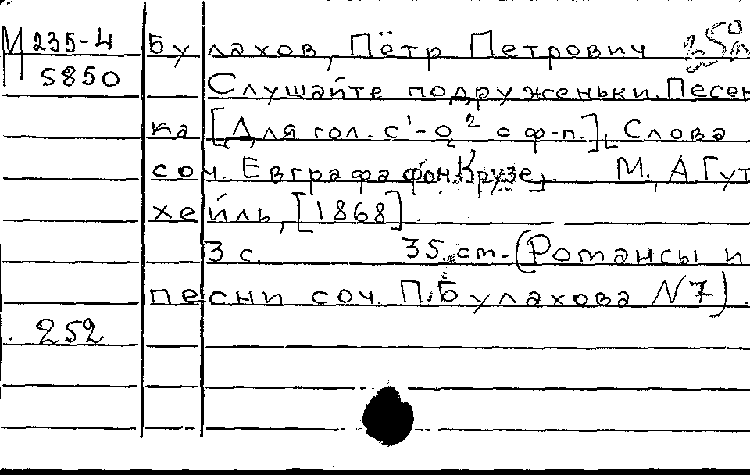 М 235-4 Булахов, Пётр Петрович 250
5850 Слушайте подруженьки. Песен
ка [Для гол. с¹-g² с ф-п.], Слова
соч. Евграфа фон Крузе, М., А Гут
хейль, [1868]
3 с. 35 ст. (Романсы и
песни соч. П. Булахова N7).
252